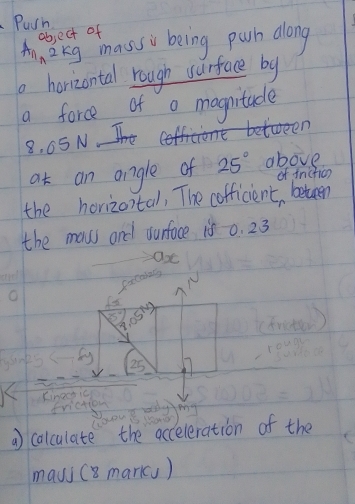 Push
object of
A 2kg mass is being push along
a horizontal rough surface by
a force of a magnitude
8.05N. The cofficient between
at an angle of 25° above
of friction
the horizontal, The cofficient between
the mass and surface is 0.23
ax
fx
N
25°
8.05N
(friction)
fy
rough
surface
25
Kinetic
friction
mg
a) Calculate the acceleration of the
mass (8 marks)